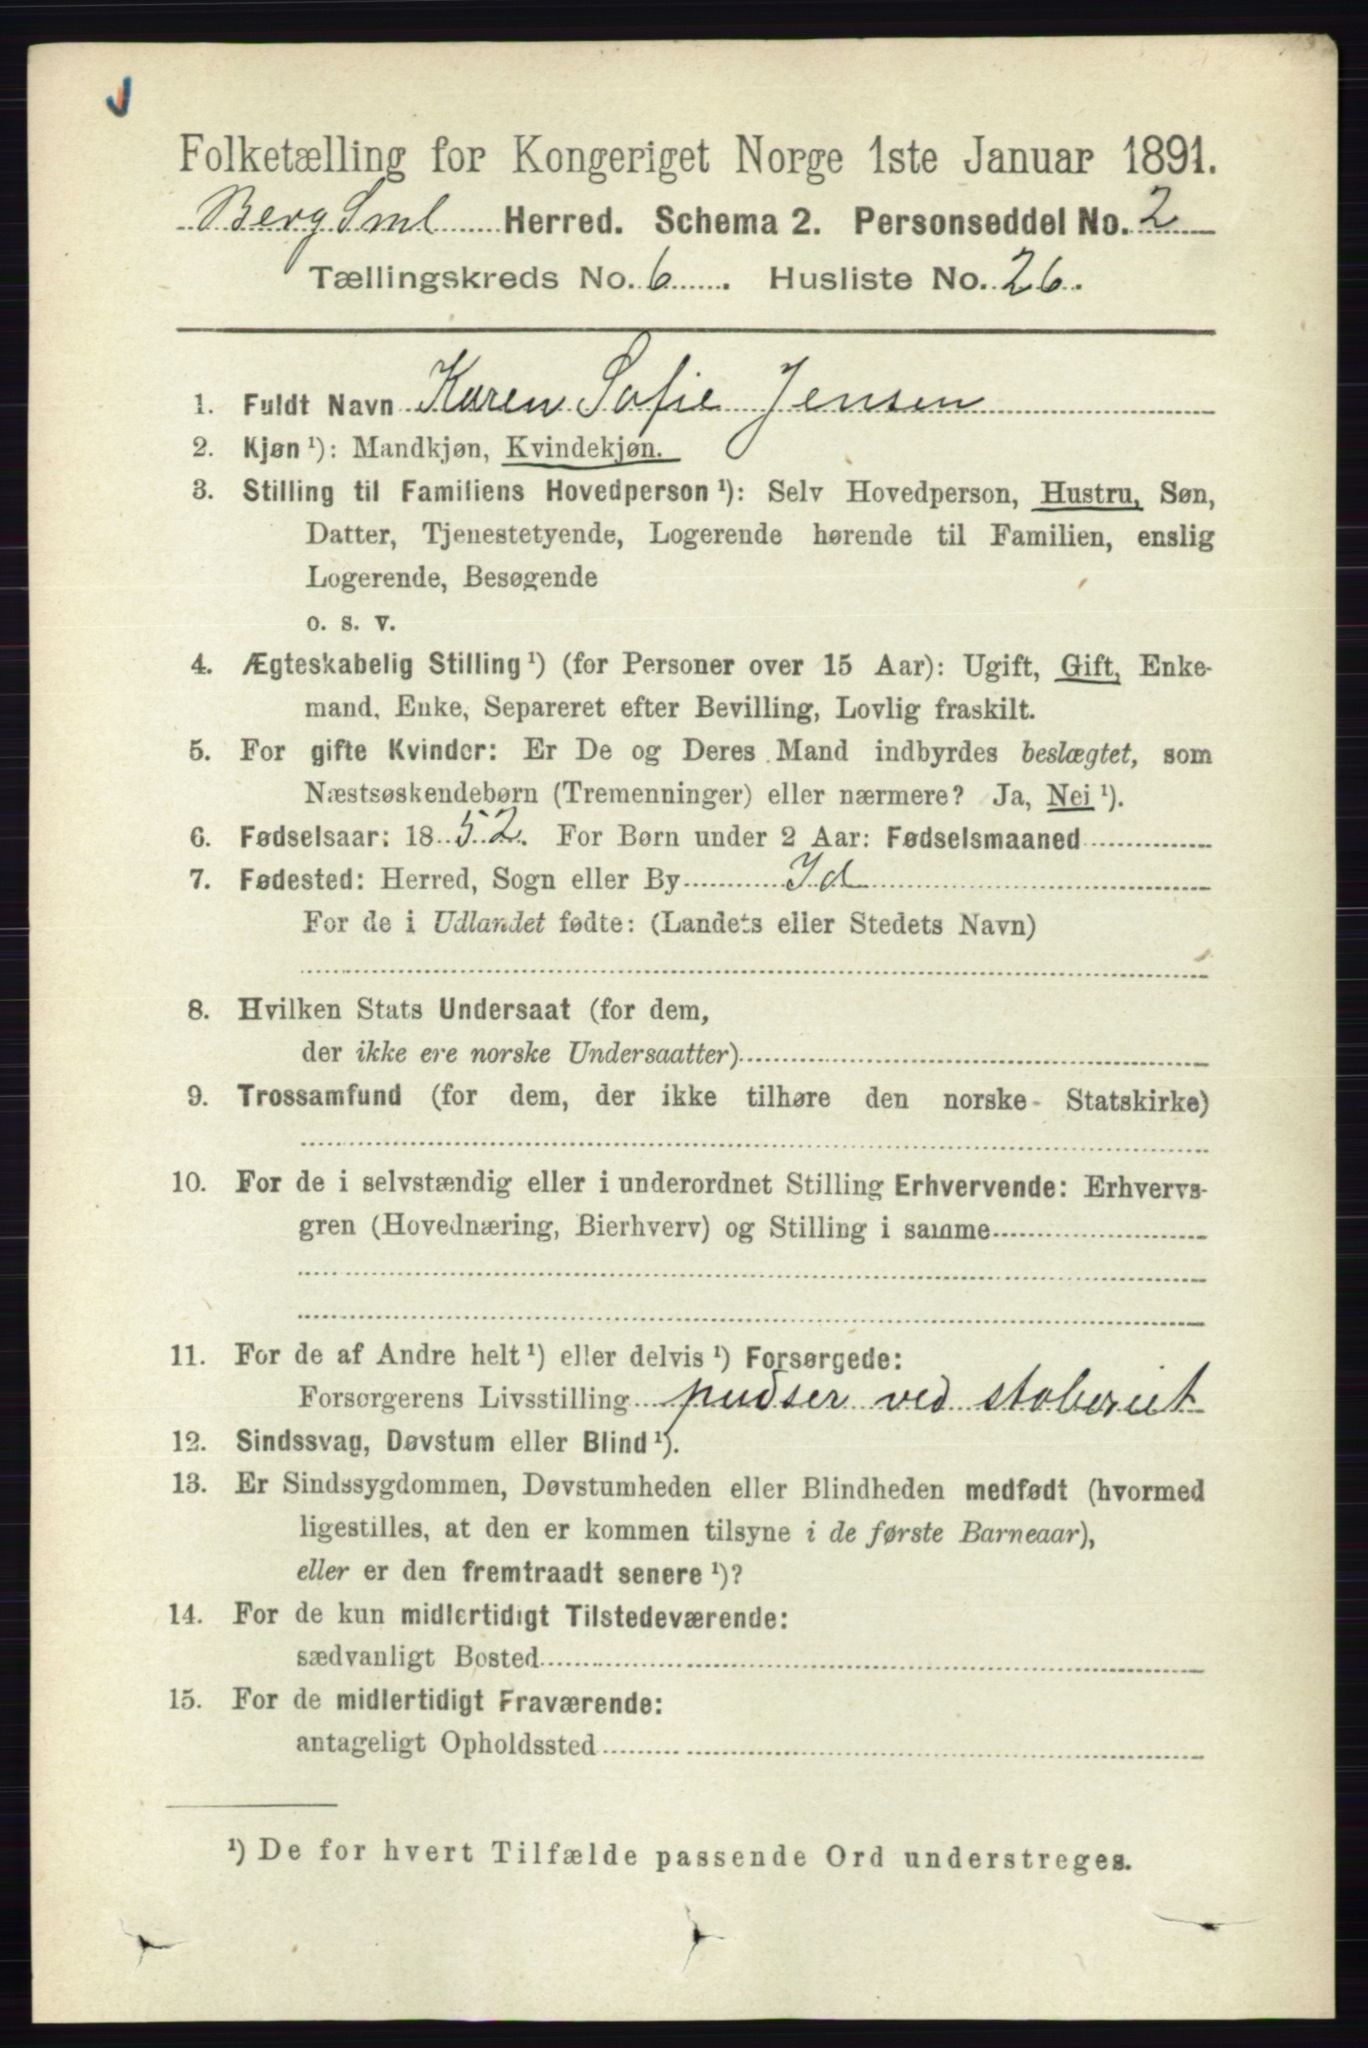 Folketælling for Kongeriget Norge 1ste Januar 1891.
Berg Sml Herred. Schema 2. Personseddel No. 2
Tællingskreds No. 6. Husliste No. 26.
1. Fuldt Navn Karen Sofie Jensen
2. Kjøn ¹): Mandkjøn, Kvindekjøn.
3. Stilling til Familiens Hovedperson ¹): Selv Hovedperson, Hustru, Søn,
Datter, Tjenestetyende, Logerende hørende til Familien, enslig
Logerende, Besøgende
o. s. v.
4. Ægteskabelig Stilling ¹) (for Personer over 15 Aar): Ugift, Gift, Enke-
mand, Enke, Separeret efter Bevilling, Lovlig fraskilt.
5. For gifte Kvinder: Er De og Deres Mand indbyrdes beslægtet, som
Næstsøskendebørn (Tremenninger) eller nærmere? Ja, Nei ¹).
6. Fødselsaar: 1852. For Børn under 2 Aar: Fødselsmaaned
7. Fødested: Herred, Sogn eller By Id
For de i Udlandet fødte: (Landets eller Stedets Navn)
8. Hvilken Stats Undersaat (for dem,
der ikke ere norske Undersaatter)
9. Trossamfund (for dem, der ikke tilhøre den norske Statskirke)
10. For de i selvstændig eller i underordnet Stilling Erhvervende: Erhvervs-
gren (Hovednæring, Bierhverv) og Stilling i samme
11. For de af Andre helt ¹) eller delvis ¹) Forsørgede:
Forsørgerens Livsstilling pudser ved støberiet
12. Sindssvag, Døvstum eller Blind ¹).
13. Er Sindssygdommen, Døvstumheden eller Blindheden medfødt (hvormed
ligestilles, at den er kommen tilsyne i de første Barneaar),
eller er den fremtraadt senere ¹)?
14. For de kun midlertidigt Tilstedeværende:
sædvanligt Bosted
15. For de midlertidigt Fraværende:
antageligt Opholdssted
¹) De for hvert Tilfælde passende Ord understreges.